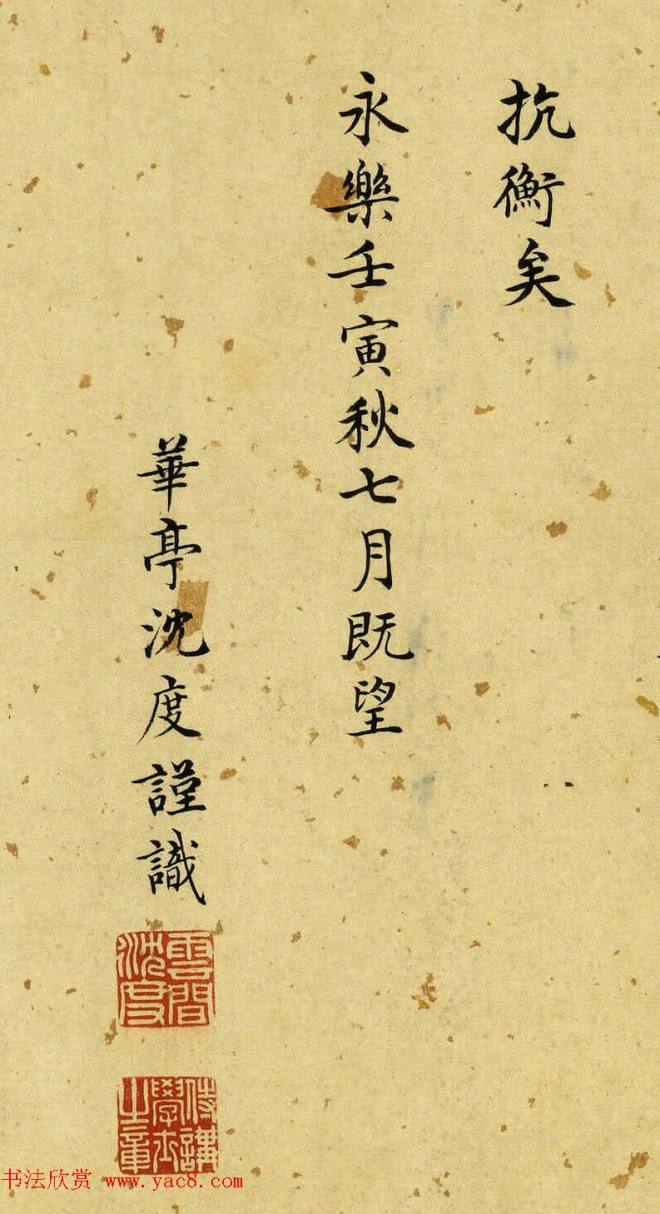 抗衡矣
永樂壬寅秋七月既望
華亭沈度謹識
雲間沈度
侍講學士之章
书法欣赏 www.yac8.com